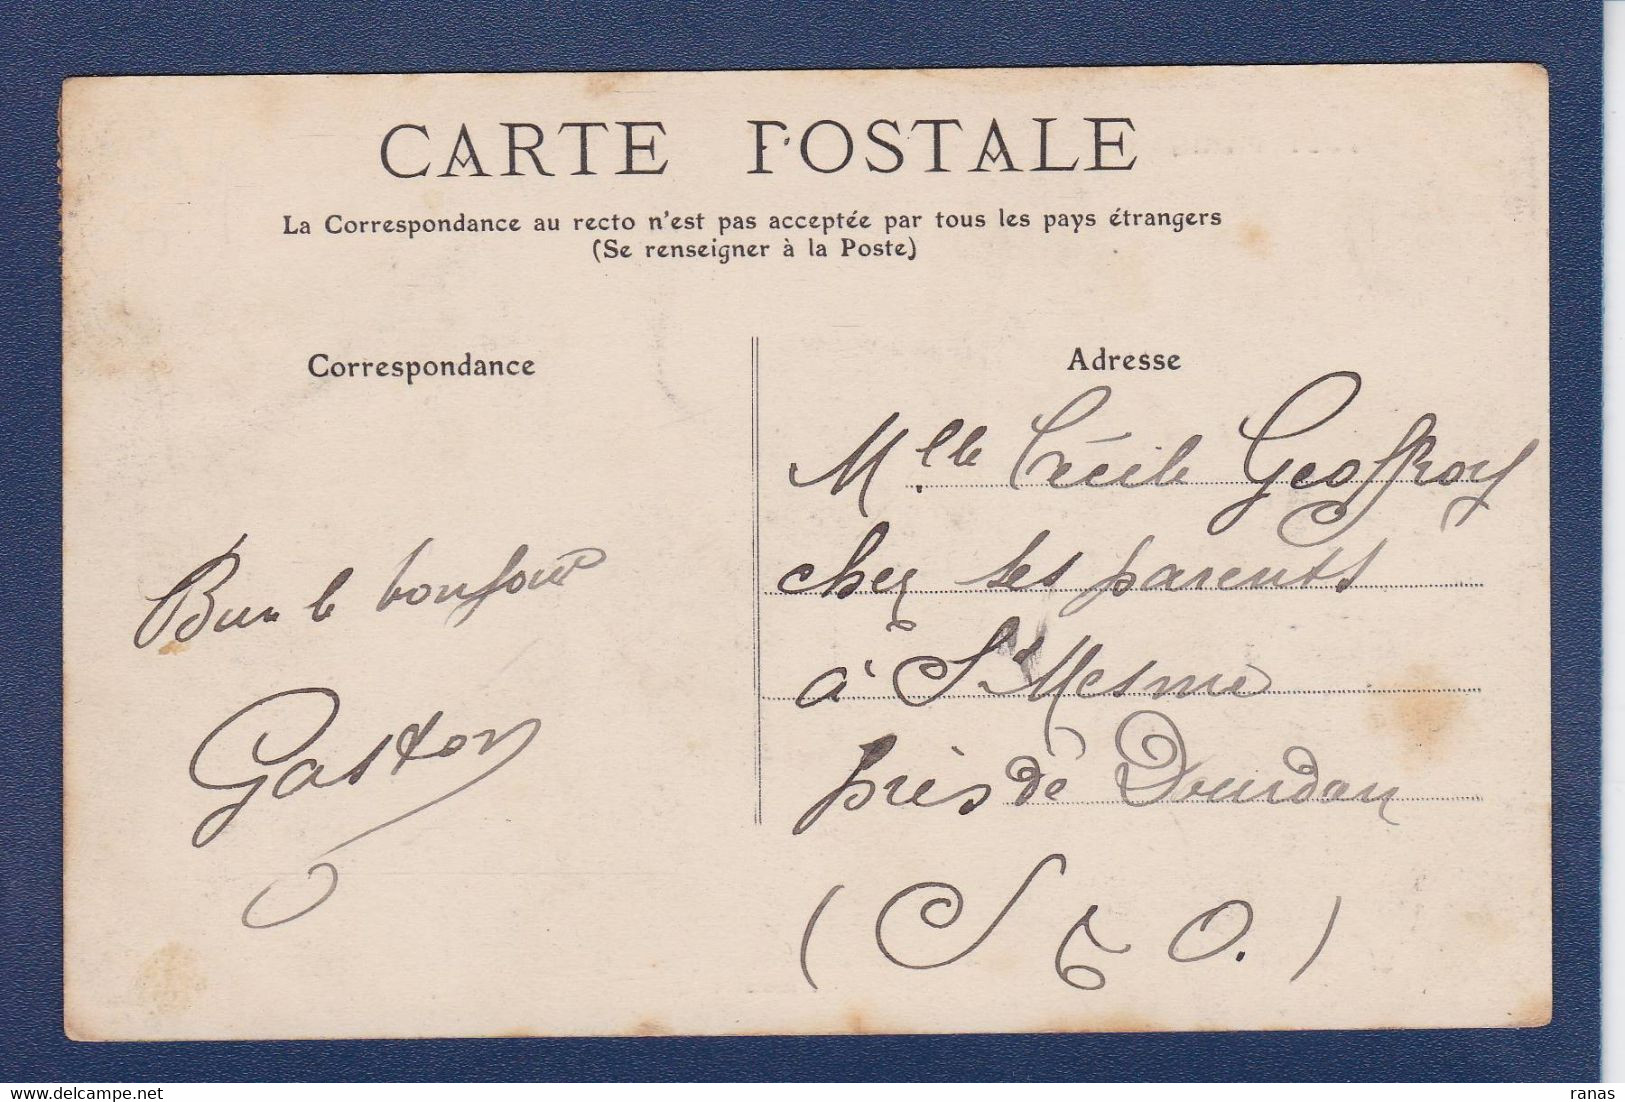 CARTE POSTALE
La Correspondance au recto n'est pas acceptée par tous les pays étrangers
(Se renseigner à la Poste)
Correspondance
Bien le bonjour
Gaston
Adresse
Mlle Cécile Geoffroy
chez ses parents
à St Mesme
près de Dourdan
(S & O.)
delcampe.net
ranas